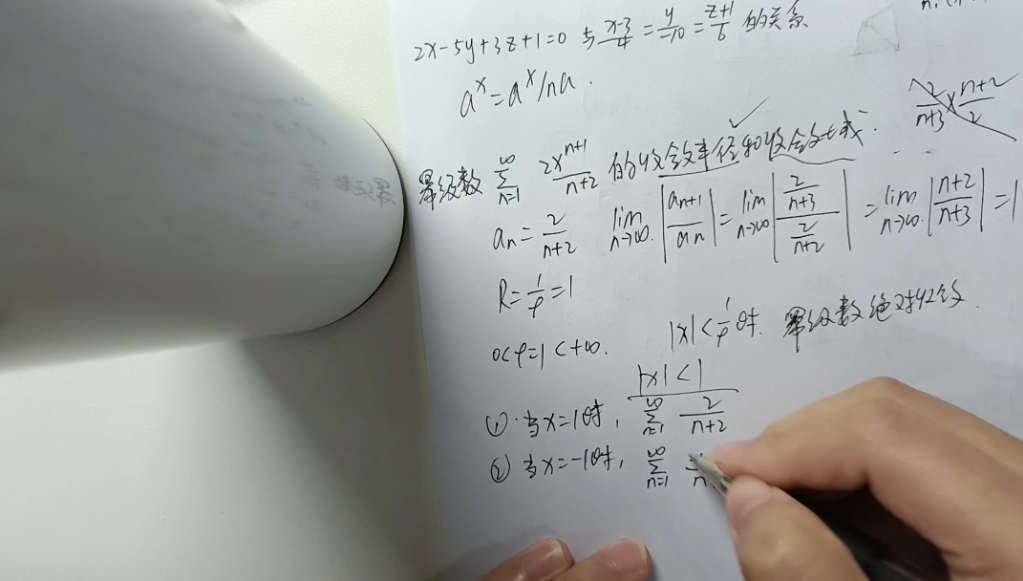 2x-5y+3z+1=0 与 \frac{x-3}{4}=\frac{y}{-10}=\frac{z+1}{6} 的关系
a^x=a^x lna.
\frac{2}{n+3}×\frac{n+2}{2}
幂级数 \sum_{n=1}^{∞} \frac{2x^{n+1}}{n+2} 的收敛半径和收敛域.
a_n=\frac{2}{n+2} \lim_{n→∞}|\frac{a_{n+1}}{a_n}|=\lim_{n→∞}|\frac{\frac{2}{n+3}}{\frac{2}{n+2}}|=\lim_{n→∞}|\frac{n+2}{n+3}|=1
R=\frac{1}{ρ}=1
0<ρ=1<+∞. |x|<\frac{1}{ρ}时. 幂级数绝对收敛.
|x|<1
① 当x=1时, \sum_{n=1}^{∞} \frac{2}{n+2}
② 当x=-1时, \sum_{n=1}^{∞}